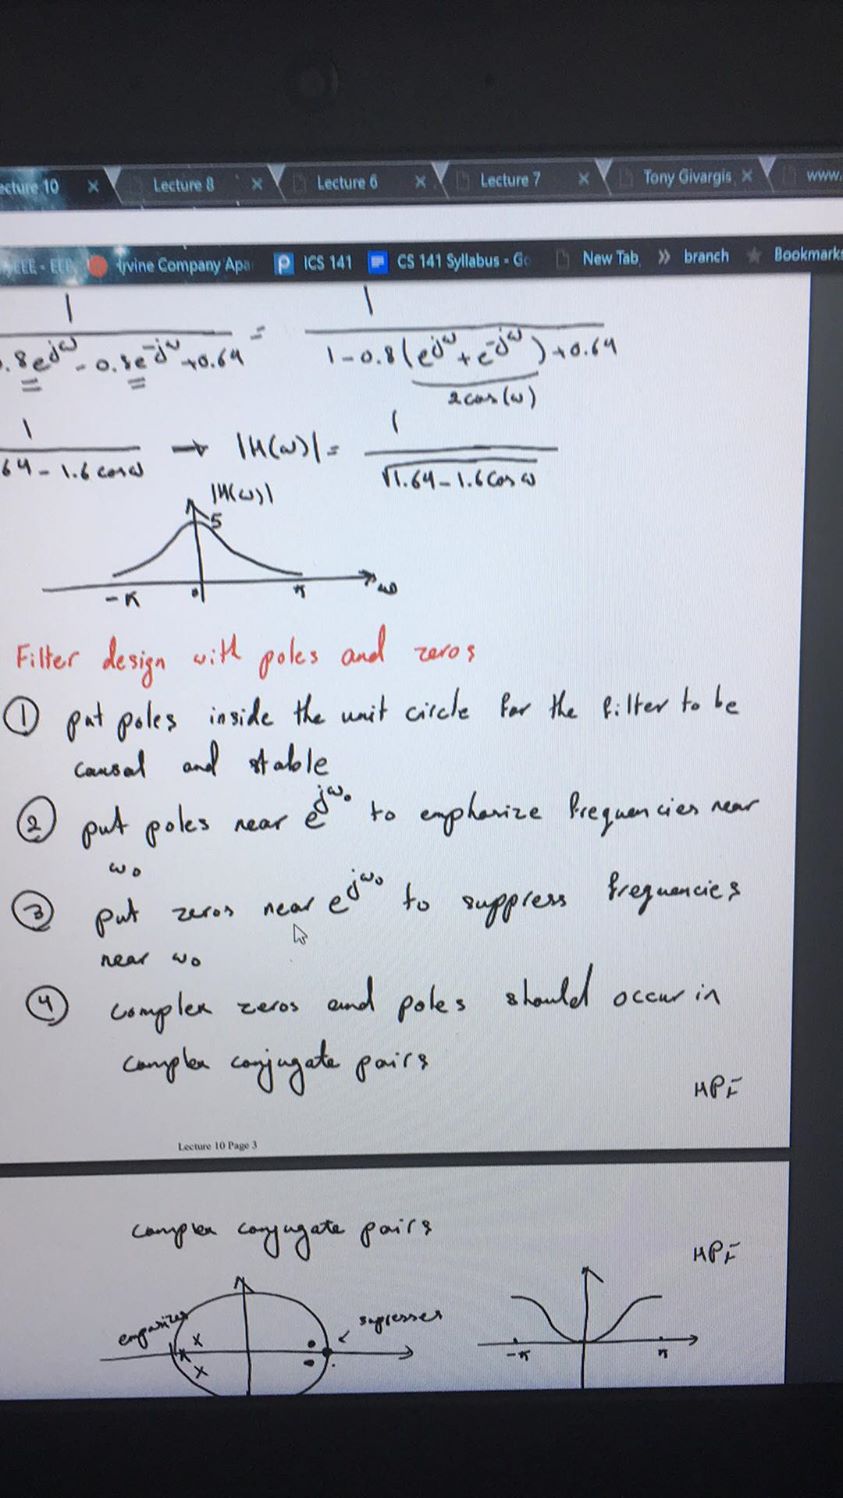 ecture 10 × Lecture 8 × Lecture 6 × Lecture 7 × Tony Givargis × www.
EEE - EEE Irvine Company Apa ICS 141 CS 141 Syllabus - Go New Tab » branch Bookmarks
1 / .8e^jω - 0.8e^-jω + 0.64 = 1 / 1 - 0.8(e^jω + e^-jω) + 0.64
2cos(ω)
1 / 64 - 1.6 cosω → |H(ω)| = 1 / √1.64 - 1.6 cosω
|H(ω)|
5
-π 0 π ω
Filter design with poles and zeros
① put poles inside the unit circle for the filter to be
causal and stable
② put poles near e^jω₀ to emphasize frequencies near
ω₀
③ put zeros near e^jω₀ to suppress frequencies
near ω₀
④ complex zeros and poles should occur in
complex conjugate pairs
HPF
Lecture 10 Page 3
complex conjugate pairs
HPF
supresses
-π π